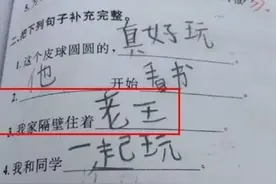 二、把下列句子补充完整。
1.这个皮球圆圆的，真好玩
2.他开始看书
3.我家隔壁住着老王
4.我和同学一起玩